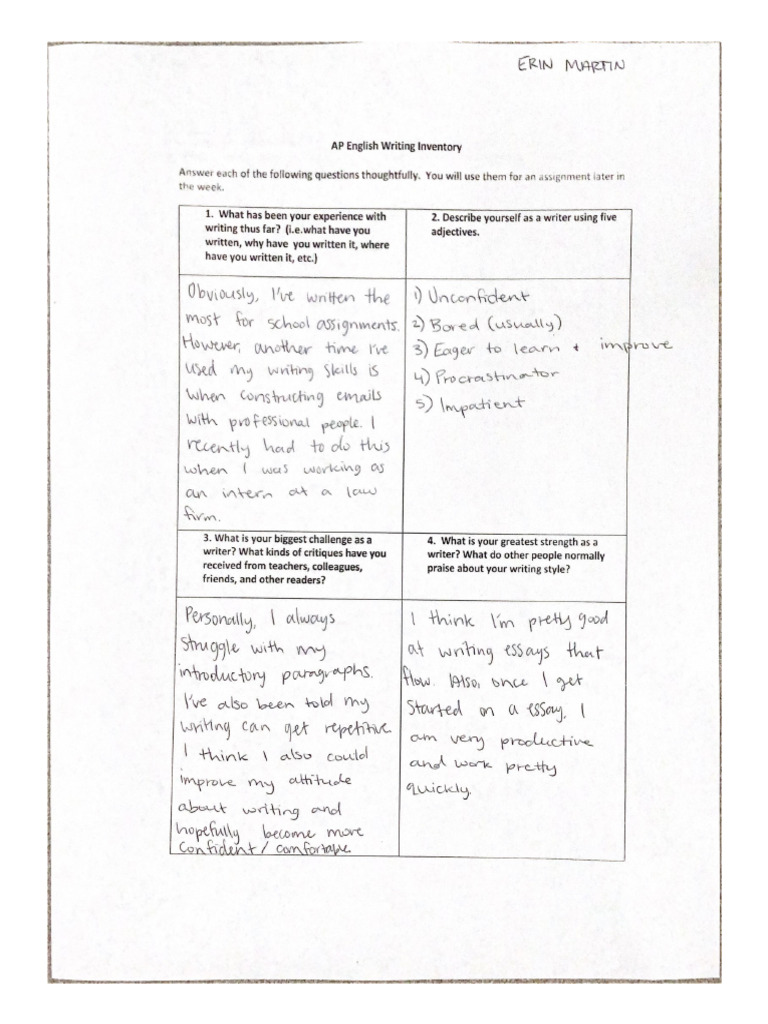 ERIN MARTIN
AP English Writing Inventory
Answer each of the following questions thoughtfully. You will use them for an assignment later in
the week.
1. What has been your experience with
writing thus far? (i.e.what have you
written, why have you written it, where
have you written it, etc.)
2. Describe yourself as a writer using five
adjectives.
Obviously, I've written the
most for school assignments.
However, another time I've
used my writing skills is
when constructing emails
with professional people. I
recently had to do this
when I was working as
an intern at a law
firm.
1) Unconfident
2) Bored (usually)
3) Eager to learn + improve
4) Procrastinator
5) Impatient
3. What is your biggest challenge as a
writer? What kinds of critiques have you
received from teachers, colleagues,
friends, and other readers?
4. What is your greatest strength as a
writer? What do other people normally
praise about your writing style?
Personally, I always
struggle with my
introductory paragraphs.
I've also been told my
writing can get repetitive.
I think I also could
improve my attitude
about writing and
hopefully become more
confident / comfortable.
I think I'm pretty good
at writing essays that
flow. Also, once I get
started on a essay, I
am very productive
and work pretty
quickly.